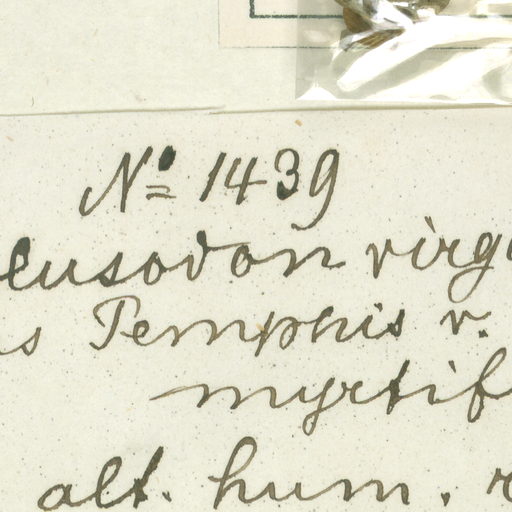 No 1439
eusodon virg
s Pemphis v.
myrtif
alt. hum.